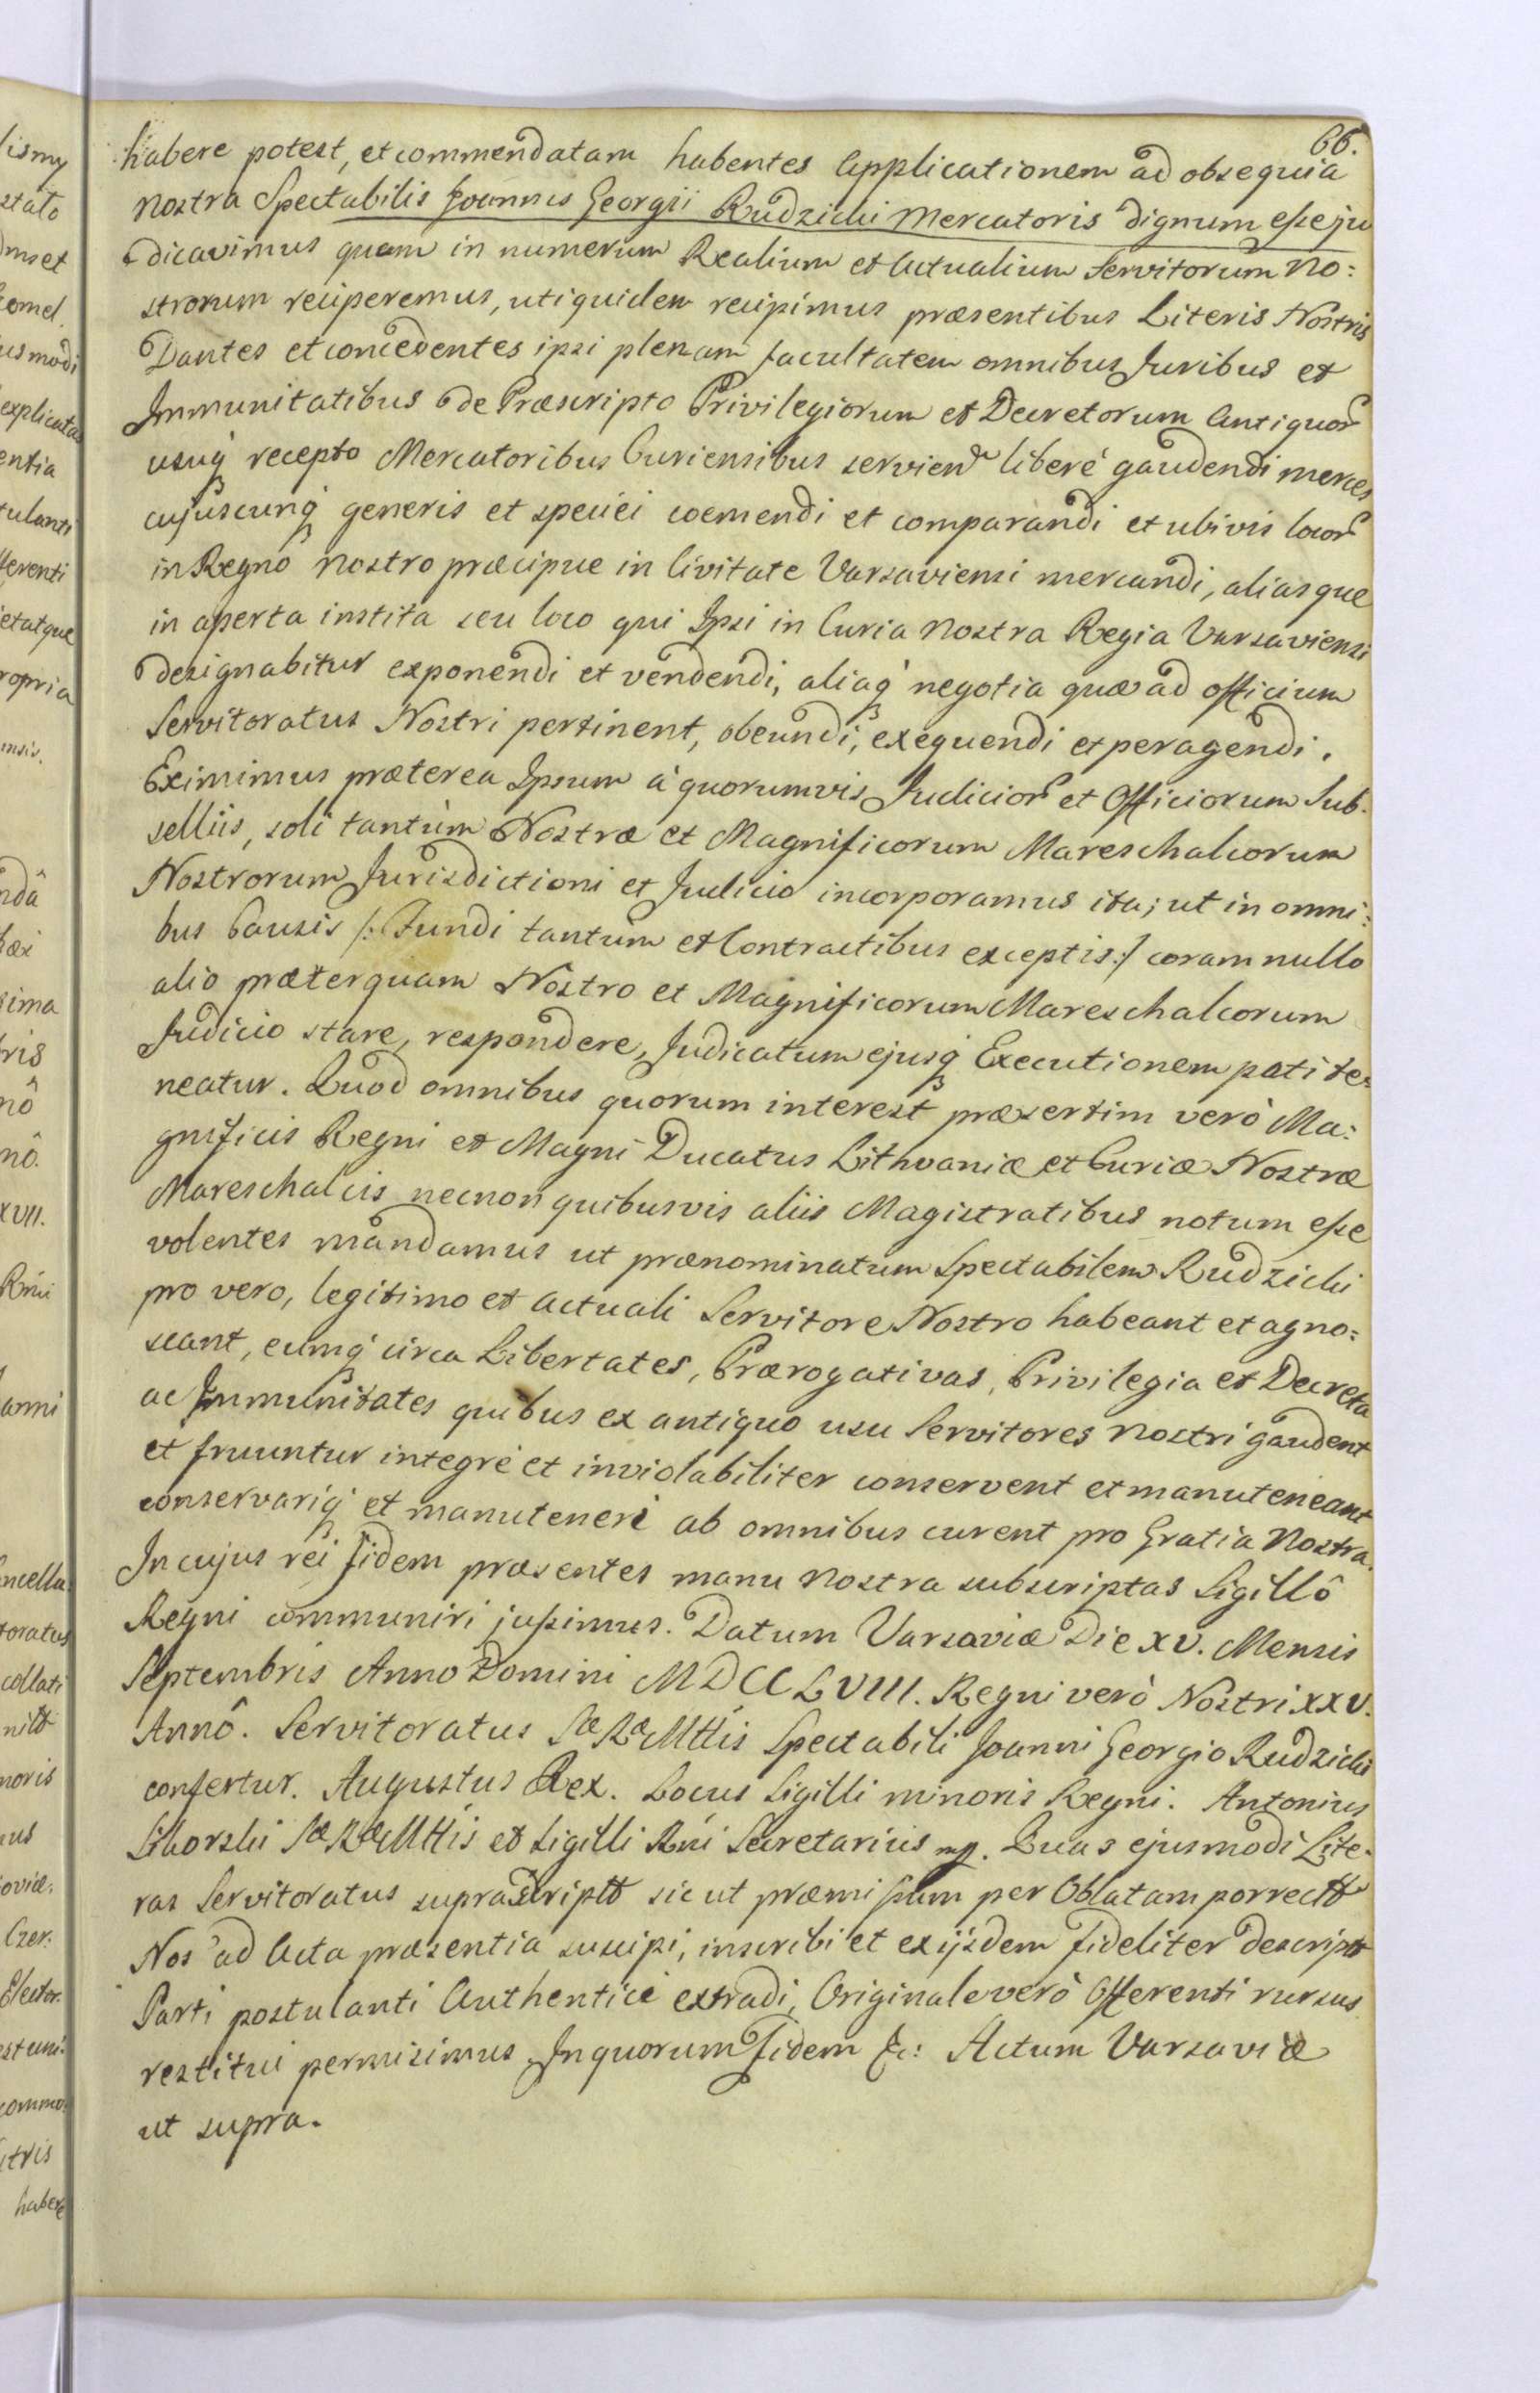 66.
habere potest, et commendatam habentes applicationem ad obsequia
nostra Spectabilis Joannis Georgii Rudzicki Mercatoris dignum esse ju
dicavimus quem in numerum Realium et Actualium Servitorum No:
strorum reciperemus, uti quidem recipimus præsentibus Literis Nostris
Dantes et concedentes ipsi plenam facultatem omnibus Juribus et
Immunitatibus de Præscripto Privilegiorum et Decretorum antiquor
usuq́ recepto Mercatoribus Curiensibus servien liberè gaudendi merces
cujuscunq́ generis et speciei coemendi et comparandi et ubivis locor
in Regno Nostro præcipue in Civitate Varsaviensi mercandi, aliasque
in aperta instita seu loco qui Ipsi in Curia Nostra Regia Varsaviensi
designabitur exponendi et vendendi, aliaq́ negotia quæ ad officium
Servitoratus Nostri pertinent, obeundi, exequendi et peragendi.
Eximimus præterea Ipsum à quorumvis Judicior et Officiorum Sub:
selliis, soli tantùm Nostræ et Magnificorum Mareschalcorum
Nostrorum Jurisdictioni et Judicio incorporamus ita; ut in omni:
bus Causis /: Fundi tantum et Contractibus exceptis :/ coram nullo
alio præterquam Nostro et Magnificorum Mareschalcorum
Judicio stare, respondere, Judicatum ejusq́ Executionem pati te:
neatur. Quod omnibus quorum interest præsertim verò Ma:
gnificis Regni et Magni Ducatus Lithvaniæ et Curiæ Nostræ
Mareschalcis necnon quibusvis aliis Magistratibus notum esse
volentes mandamus ut prænominatum Spectabilem Rudzicki
pro vero, legitimo et actuali Servitore Nostro habeant et agno:
scant, eumq́ circa Libertates, Prærogativas, Privilegia et Decreta
ac Immunitates quibus ex antiquo usu Servitores nostri gaudent
et fruuntur integrè et inviolabiliter conservent et manuteneant
conservariq́ et manuteneri ab omnibus curent pro Gratia Nostra.
In cujus rei fidem præsentes manu nostra subscriptas Sigillô
Regni communiri jussimus. Datum Varsaviæ Die XV. Mensis
Septembris Anno Domini MDCCLVIII. Regni verò Nostri XXV.
Annô. Servitoratus Sæ Ræ Mttis Spectabili Joanni Georgio Rudzicki
confertur. Augustus Rex. Locus Sigilli minoris Regni. Antonius
Sikorski Sæ Ræ Mttis et Sigilli Rni Secretarius mp. Quas ejusmodi Lite:
ras Servitoratus suprascriptt sicut præmissum per Oblatam porrectt
Nos ad Acta præsentia suscipi, inscribi et ex ijsdem fideliter descriptt
Parti postulanti Authenticè extradi, Originale verò Offerenti rursus
restitui permisimus. In quorum fidem &c: Actum Varsaviæ
ut supra.